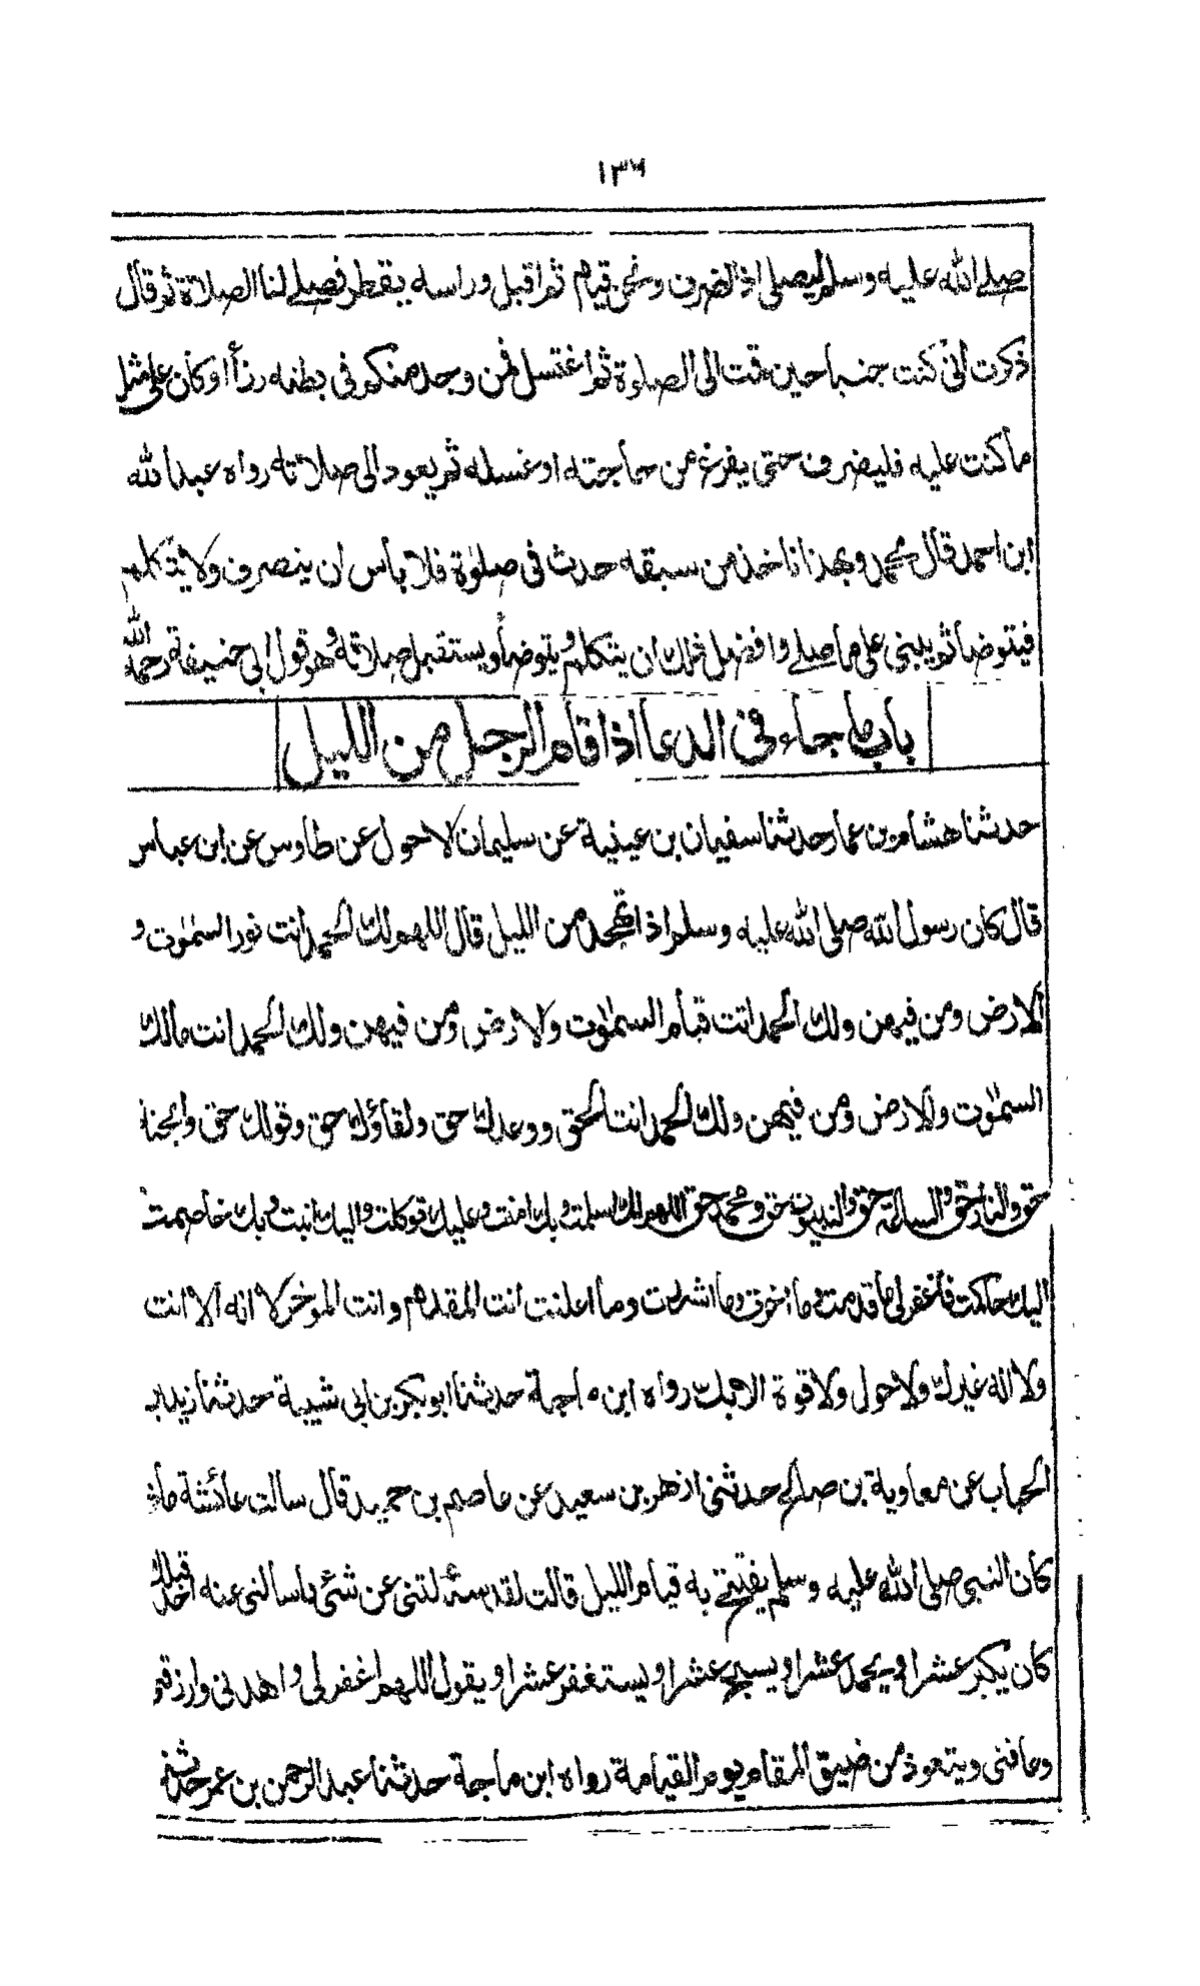 ١٣٦
صلے الله عليه وسلم يصلی اذ انصرف ونحن قيام ثم اقبل وراسه يقطر فصلے لنا الصلاة ثم قال
ذكرت انی كنت جنبا حين قمت الى الصلوة ثم اغتسل فمن وجد منكم فی بطنه رزأ اوكان على مثل
ما كنت عليه فلينصرف حتى يفرغ من حاجته او غسله ثم يعود الى صلاته رواه عبد الله
ابن احمد قال محمد وبهذا ناخذ من سبقه حدث فی صلوٰة فلا بأس ان ينصرف ولا يتكلم
فيتوضأ ثم يبنی علی ما صلے وافضل ذلك ان يتكلم ويتوضأ ويستقبل صلاته وهو قول ابی حنيفة رحمه الله
باب ما جاء فی الدعا اذا قام الرجل من الليل
حدثنا هشام بن عمار حدثنا سفيان بن عينية عن سليمان لاحول عن طاوس عن ابن عباس
قال كان رسول الله صلی الله عليه وسلم اذا تهجد من الليل قال اللهم لك الحمد انت نور السمٰوٰت و
الارض ومن فيهن ولك الحمد انت قيام السمٰوٰت ولارض ومن فيهن ولك الحمد انت مالك
السمٰوٰت والارض ومن فيهن ولك الحمد انت الحق ووعدك حق ولقاؤك حق وقولك حق والجنة
حق والنار حق والساعة حق والنبيون حق ومحمد حق اللهم لك اسلمت وبك امنت وعليك توكلت واليك انبت وبك خاصمت
اليك حاكمت فاغفر لی ما قدمت وما اخرت وما اسررت وما اعلنت انت المقدم وانت الموخر لا اله الا انت
ولا اله غيرك ولا حول ولا قوة الا بك رواه ابن ماجة حدثنا ابو بكر بن ابی شيبة حدثنا زيد بـ
الحباب عن معاوية بن صالح حدثنی ازهر بن سعيد عن عاصم بن حميد قال سالت عائشة ماذ
كان النبی صلی الله عليه وسلم يفتتح به قيام الليل قالت لقد سئلتنی عن شئی ما سالنی عنه احد قبلك
كان يكبر عشرا ويحمد عشرا ويسبح عشرا ويستغفر عشرا ويقول اللهم اغفر لی واهدنی وارزقنی
وعافنی ويتعوذ من ضيق المقام يوم القيامة رواه ابن ماجة حدثنا عبد الرحمن بن عمر حدثنا